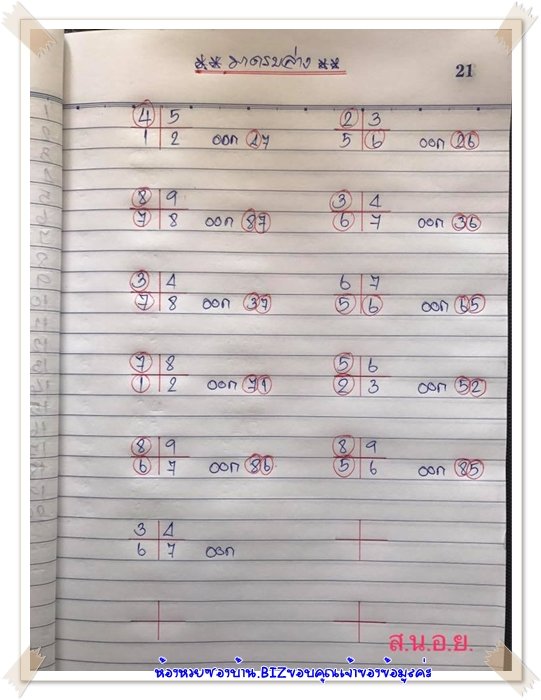 ** มาครบล่าง **
21
4 5
1 2 ออก 27
2 3
5 6 ออก 26
8 9
7 8 ออก 87
3 4
6 7 ออก 36
3 4
7 8 ออก 37
6 7
5 6 ออก 65
7 8
1 2 ออก 71
5 6
2 3 ออก 52
8 9
6 7 ออก 86
8 9
5 6 ออก 85
3 4
6 7 ออก
ส.น.อ.ย.
ห้องหวยซองบ้าน.BIZขอบคุณเจ้าของข้อมูลค่ะ